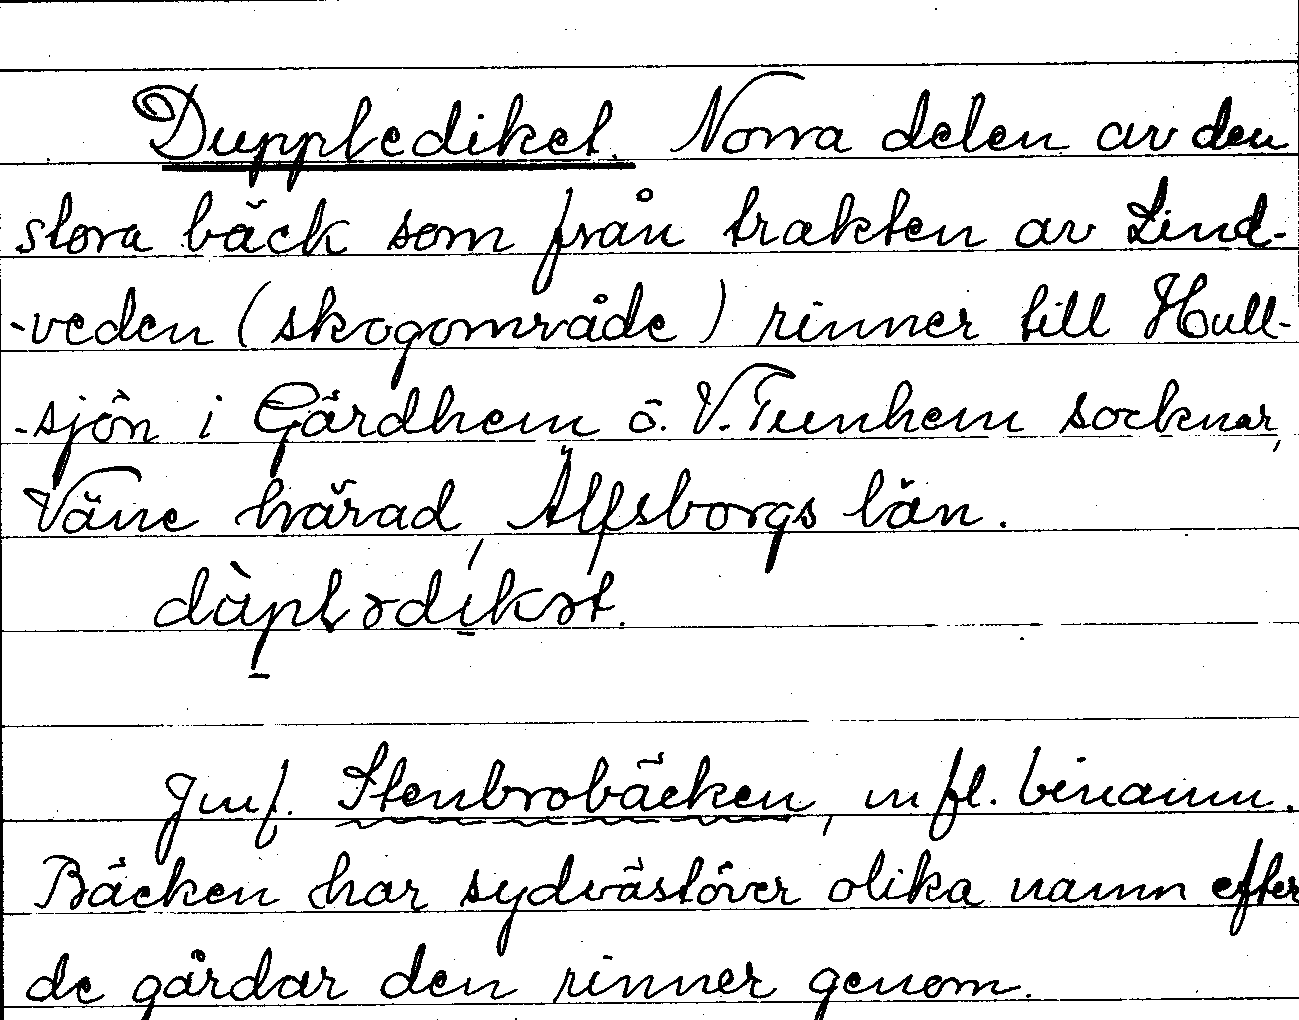 Dupplediket. Norra delen av den
stora bäck som från trakten av Lind-
-veden (skogområde) rinner till Hull-
-sjön i Gärdhem o. V. Tunhem socknar,
Väne härad, Älfsborgs län.
dàplədikət.
Jmf. Stenbrobäcken, m fl. binamn.
Bäcken har sydvästöver olika namn efter
de gårdar den rinner genom.